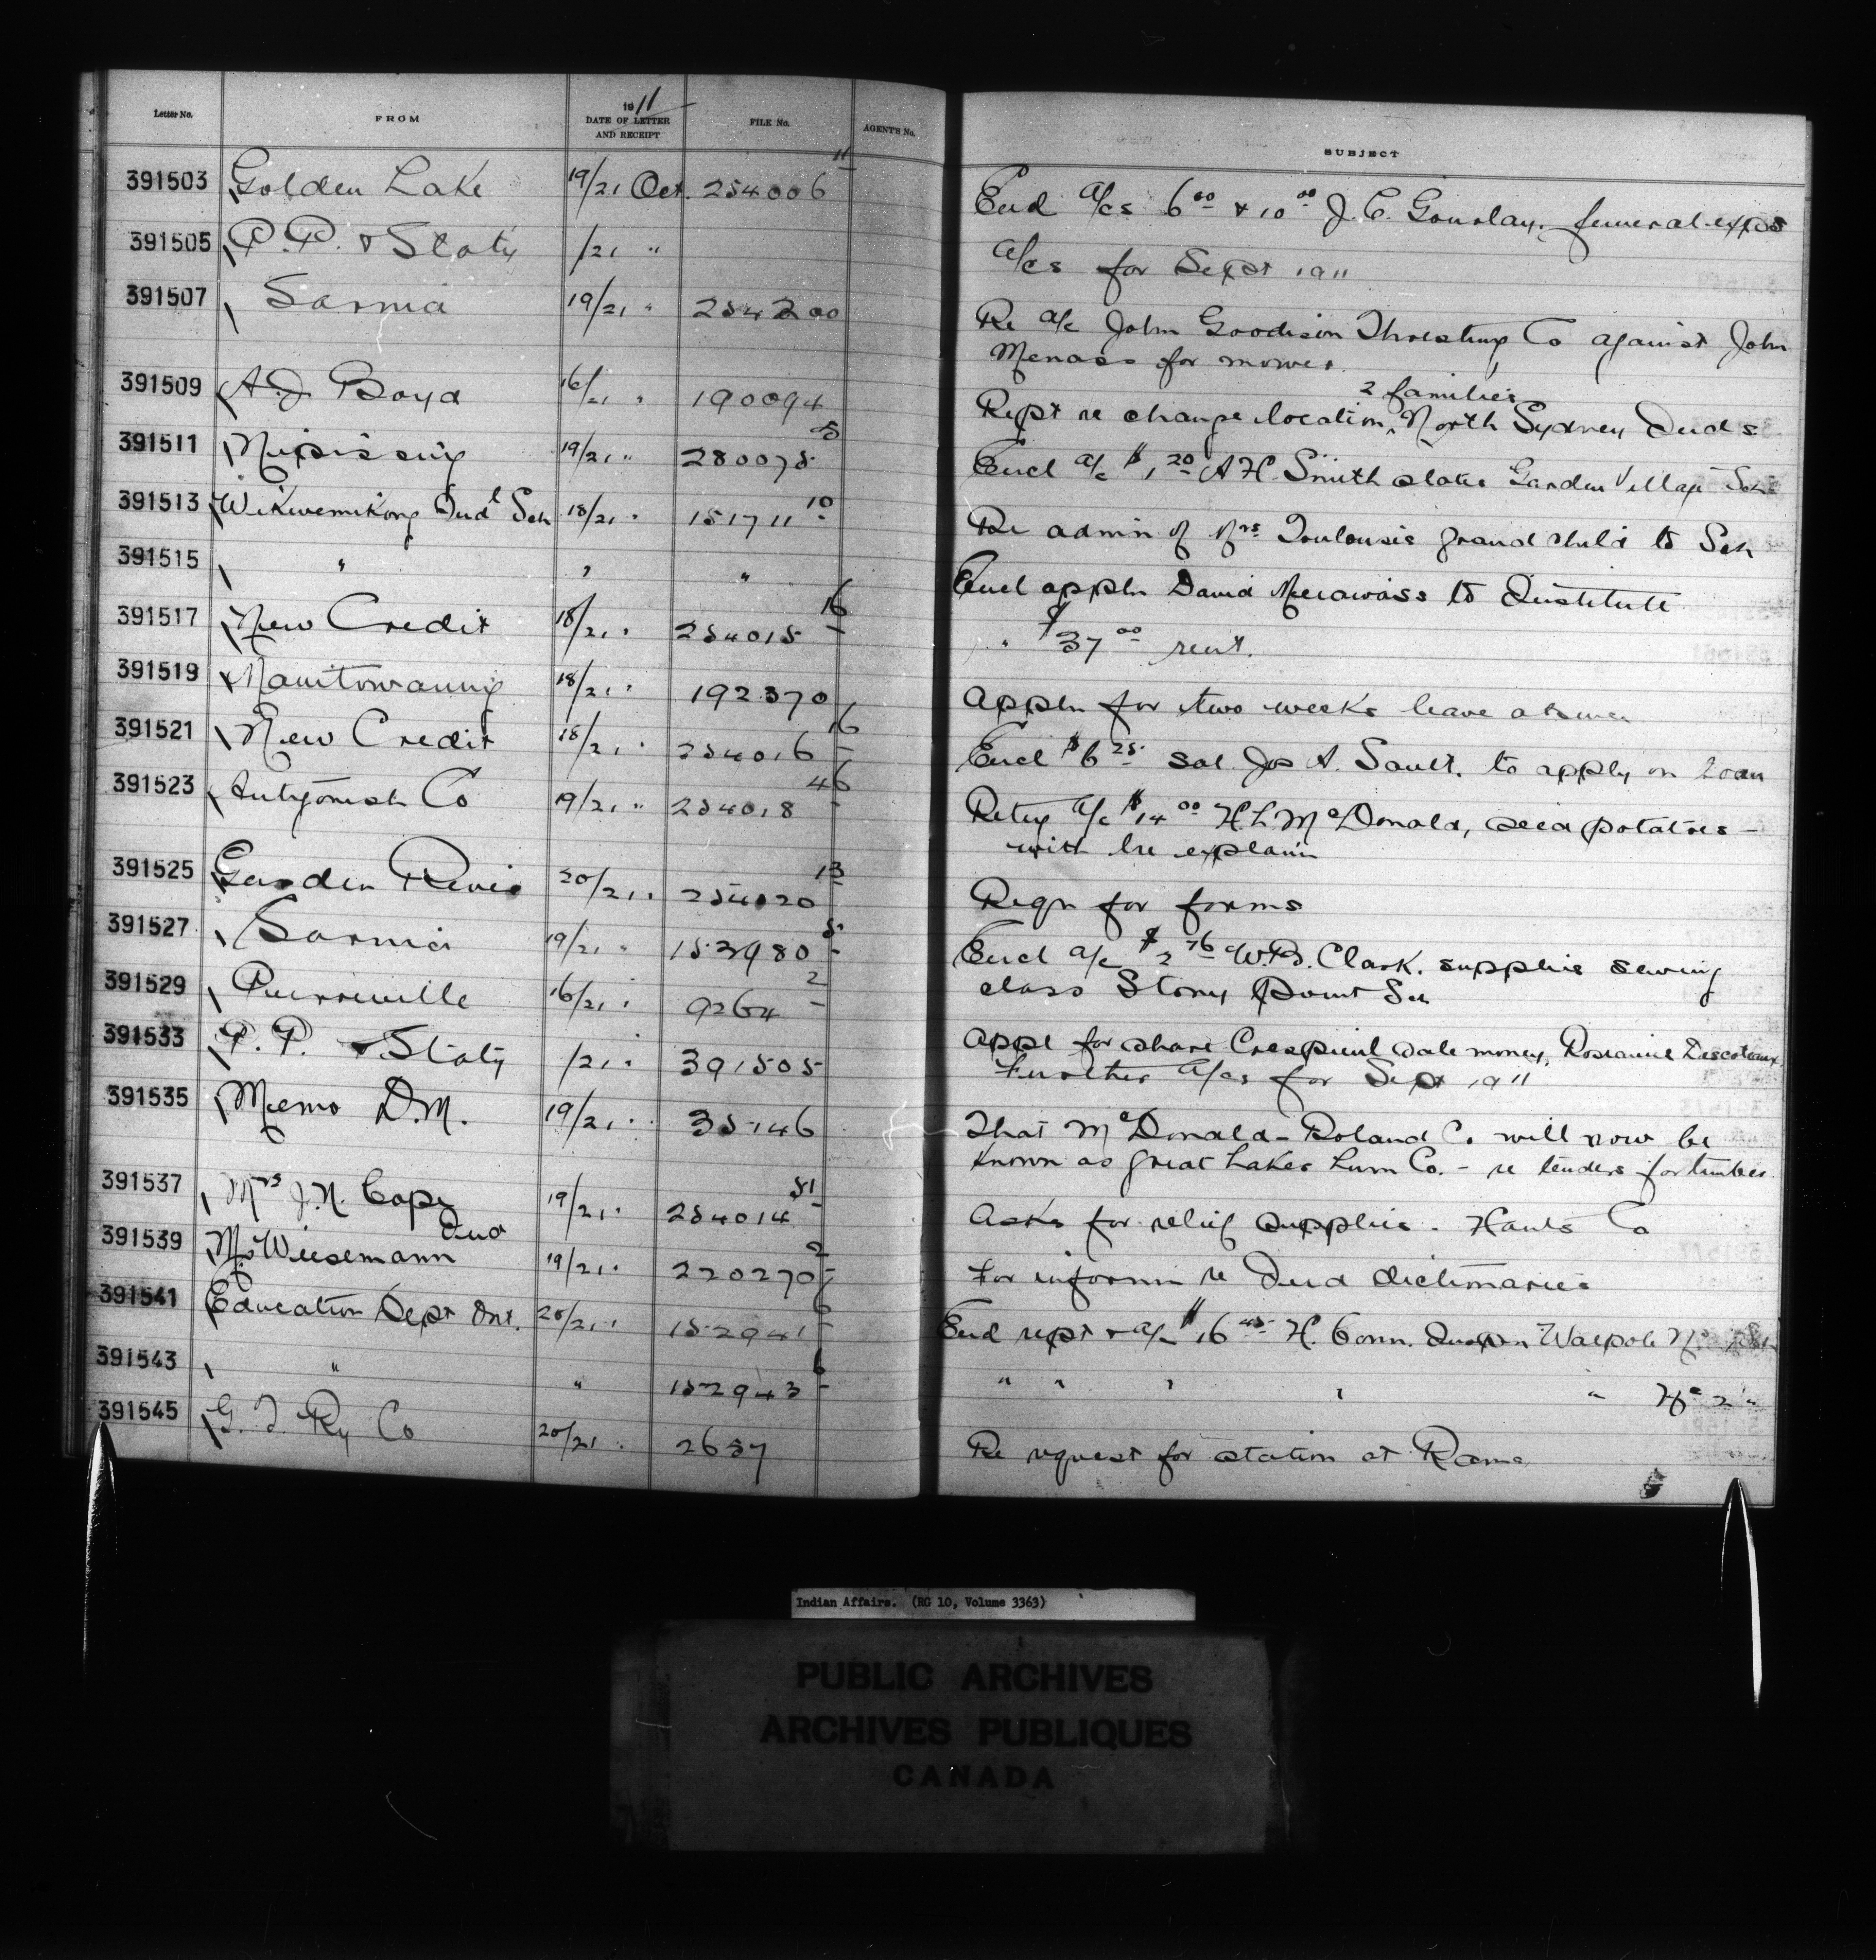 Letter No. FROM 1911 DATE OF LETTER AND RECEIPT FILE No. AGENT'S No. SUBJECT
391503 Golden Lake 19/21 Oct. 254006 11 Encl a/cs 6 00 & 10 00 J. C. Gourlay, funeral expes
391505 P. P. & Staty /21 " a/cs for Sept 1911
391507 Sarnia 19/21 " 254200 Re a/c John Goodison Threshing Co against John
Menass for mower
391509 A. J. Boyd 16/21 " 190094 Rept re change location, 2 families North Sydney Inds
391511 Nipissing 19/21 " 280075 Encl a/c $1 20 A H. Smith slates Garden Village Sch
391513 Wikwemikong Indl Sch 18/21 " 151711 10 Re admn of Mrs grand child to Sch
391515 " " " Encl appln David to Institute
391517 New Credit 18/21 " 254015 16 " $37 00 rent.
391519 Manitowaning 18/21 " 192370 Appln for two weeks leave absence
391521 New Credit 18/21 " 254016 16 Encl $6 25 sal Jos A. Sault. to apply on Loan
391523 Antigonish Co 19/21 " 254018 46 Retug a/c $14 00 H L McDonald, seed potatoes -
with lre explann
391525 Garden River 20/21 " 254020 13 Reqn for forms
391527 Sarnia 19/21 " 153980 5 Encl a/c $2 76 W. B. Clark. supplies sewing
class Stony Point Sch
391529 Pierreville 16/21 " 9264 2 Appl for share Crespieul sale money,
391533 P. P. & Staty /21 " 391505 Further a/cs for Sept 1911
391535 Memo D.M. 19/21 " 35146 That McDonald-Boland Co will now be
known as Great Lakes Lum Co. - re tenders for timber
391537 Mrs J. N. Cope 19/21 " 254014 51 Asks for relief supplies. Hants Co
391539 Ms Wiesemann 19/21 " 220270 2 For informn re Ind dictionaries
391541 Education Dept Ont. 20/21 " 152941 6 Encl rept & a/c $16 45 H. Conn. Inspn Walpole No
391543 " " 152943 6 " " " " " No 2 "
391545 G. T. Ry Co 20/21 " 2657 Re request for station at Rama
Indian Affairs. (RG 10, Volume 3363)
PUBLIC ARCHIVES
ARCHIVES PUBLIQUES
CANADA